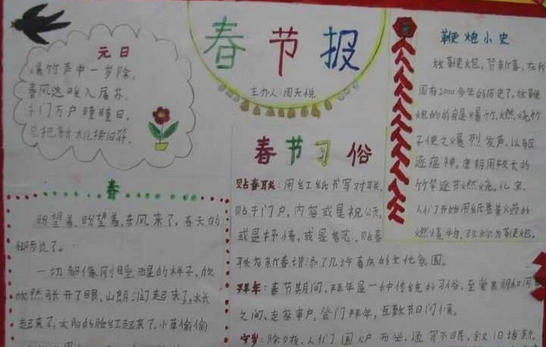 春节报
主办人:周天悦
元日
爆竹声中一岁除,
春风送暖入屠苏。
千门万户曈曈日,
总把新桃换旧符。
春
盼望着,盼望着,东风来了,春天的
脚步近了。
一切都像刚睡醒的样子,欣
欣然张开了眼。山朗润起来了,水长
起来了,太阳的脸红起来了。小草偷偷
春节习俗
贴春联:用红纸书写对联,
贴于门户,内容或是祝公天,
或是抒情,或是
联为新春增添了几许喜庆的文化氛围。
拜年:春节期间,拜年是一种传统的习俗,至爱亲朋和同
之间,走家串户,登门拜年,互致节日问候。
守岁:除夕夜,人们围炉而坐,通宵不眠,叙旧话新,
鞭炮小史
放鞭炮,贺新春,在我
国有2000多年的历史了。放鞭
炮的前身是爆竹。燃烧竹
子使之爆烈发声,以驱
逐瘟神。唐朝用较长的
竹竿逐节燃烧。北宋
人们开始用纸卷着火药的
燃烧物,改称为鞭炮。